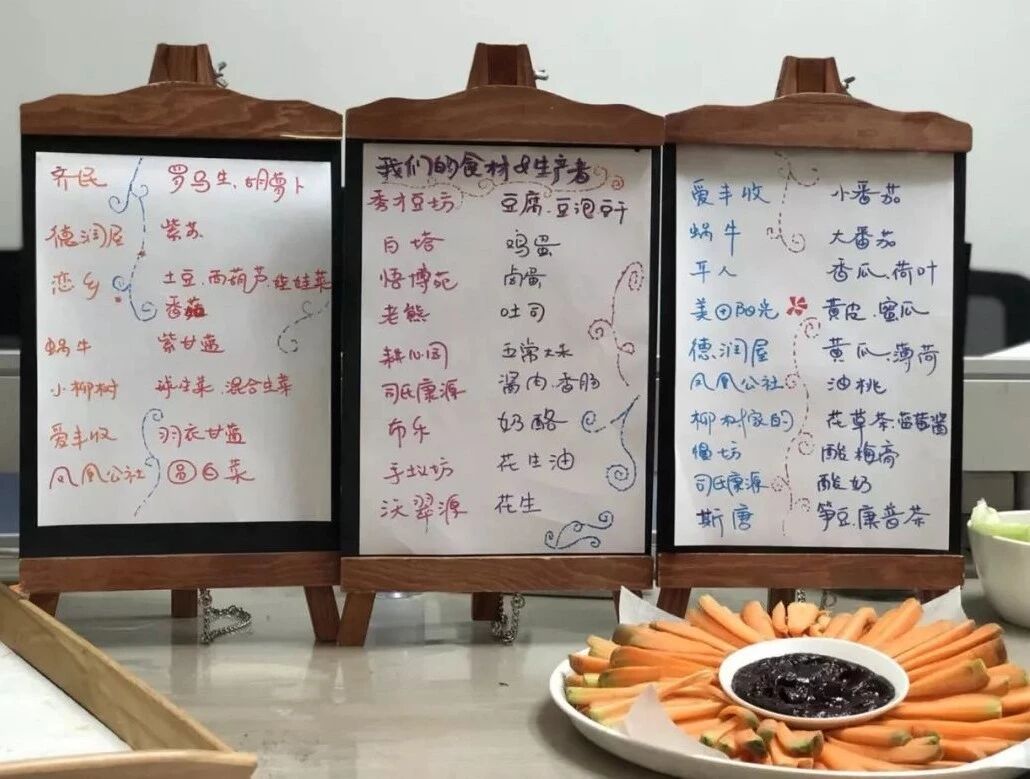 齐民 罗马生、胡萝卜
德润屋 紫苏
恋乡 土豆、西葫芦、娃娃菜
香菇
蜗牛 紫甘蓝
小柳树 球生菜、混合生菜
爱丰收 羽衣甘蓝
凤凰公社 圆白菜
我们的食材&生产者
秀才豆坊 豆腐、豆泡、豆干
白塔 鸡蛋
悟博苑 卤蛋
老熊 吐司
耕心田 五常大米
司氏康源 酱肉、香肠
布乐 奶酪
手奴坊 花生油
沃翠源 花生
爱丰收 小番茄
蜗牛 大番茄
耳人 香瓜、荷叶
美田阳光 黄皮、蜜瓜
德润屋 黄瓜、薄荷
凤凰公社 油桃
柳树家的 花草茶、蓝莓酱
偈坊 酸梅膏
司氏康源 酸奶
斯唐 笋豆、康普茶